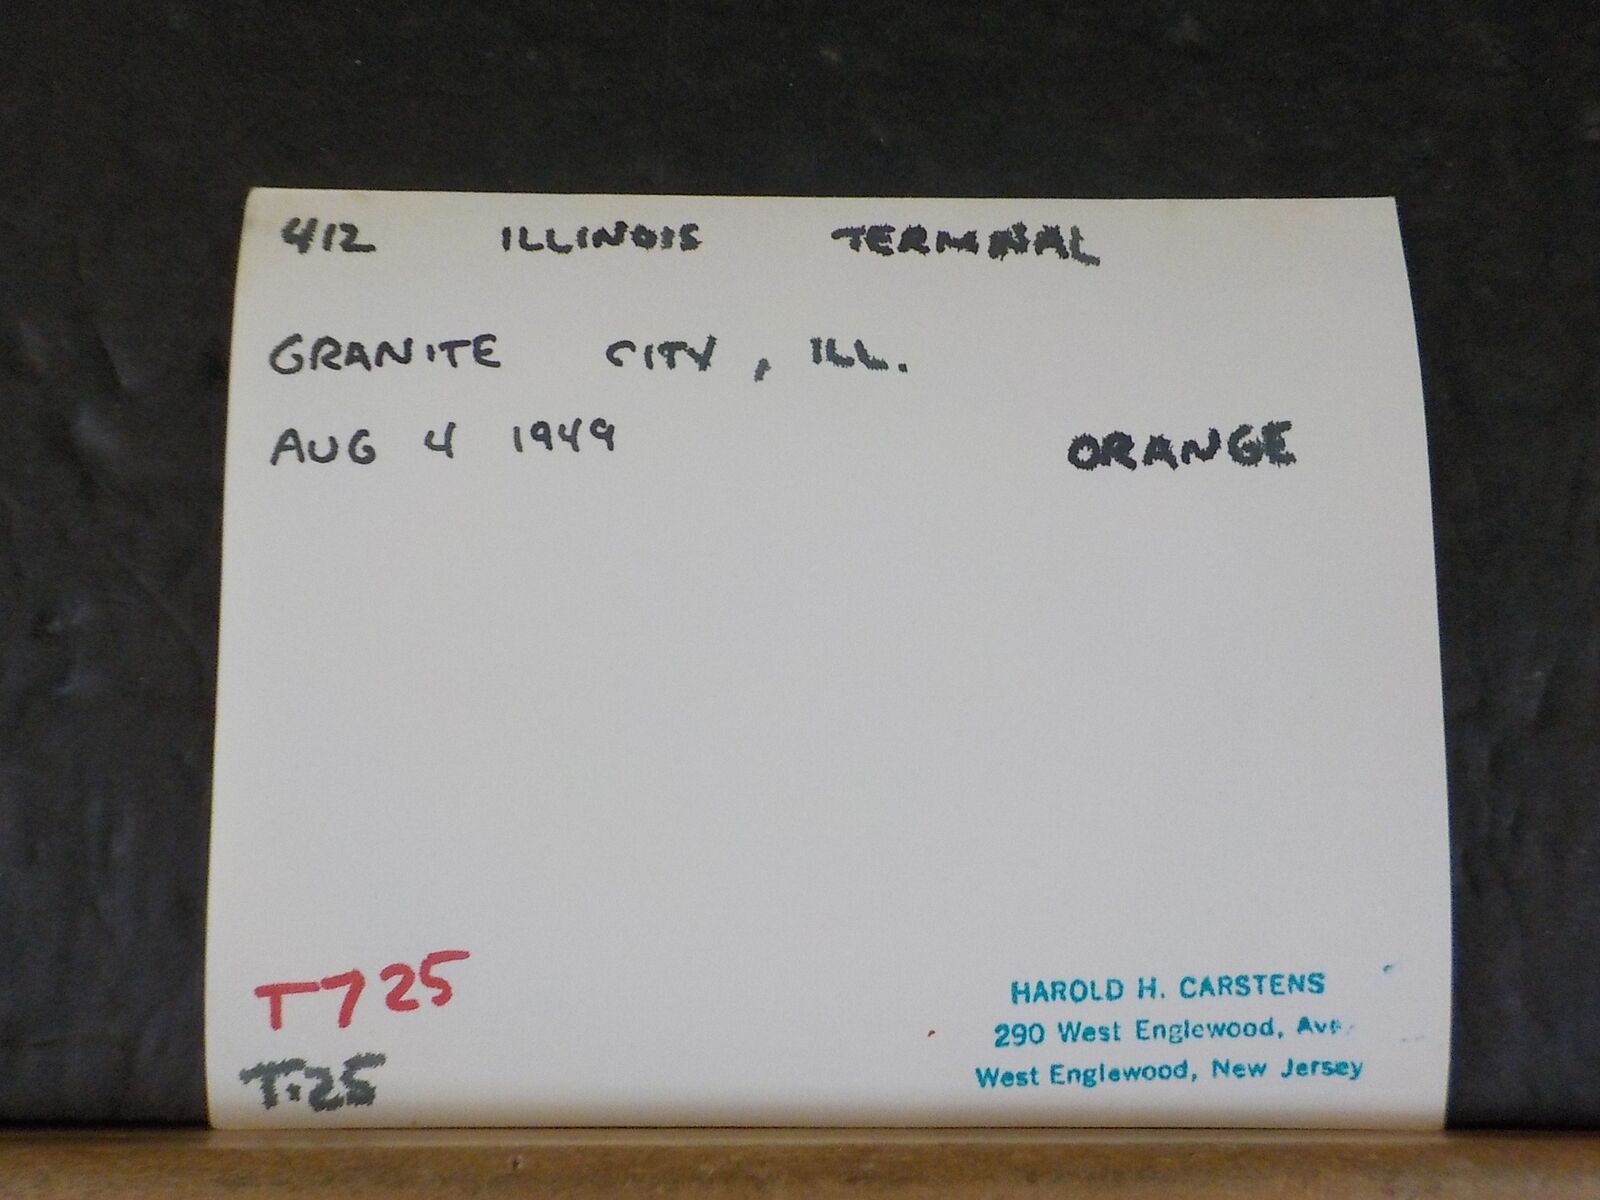 412 ILLINOIS TERMINAL
GRANITE CITY, ILL.
AUG 4 1949 ORANGE
T725
T-25
HAROLD H. CARSTENS
290 West Englewood, Ave.
West Englewood, New Jersey